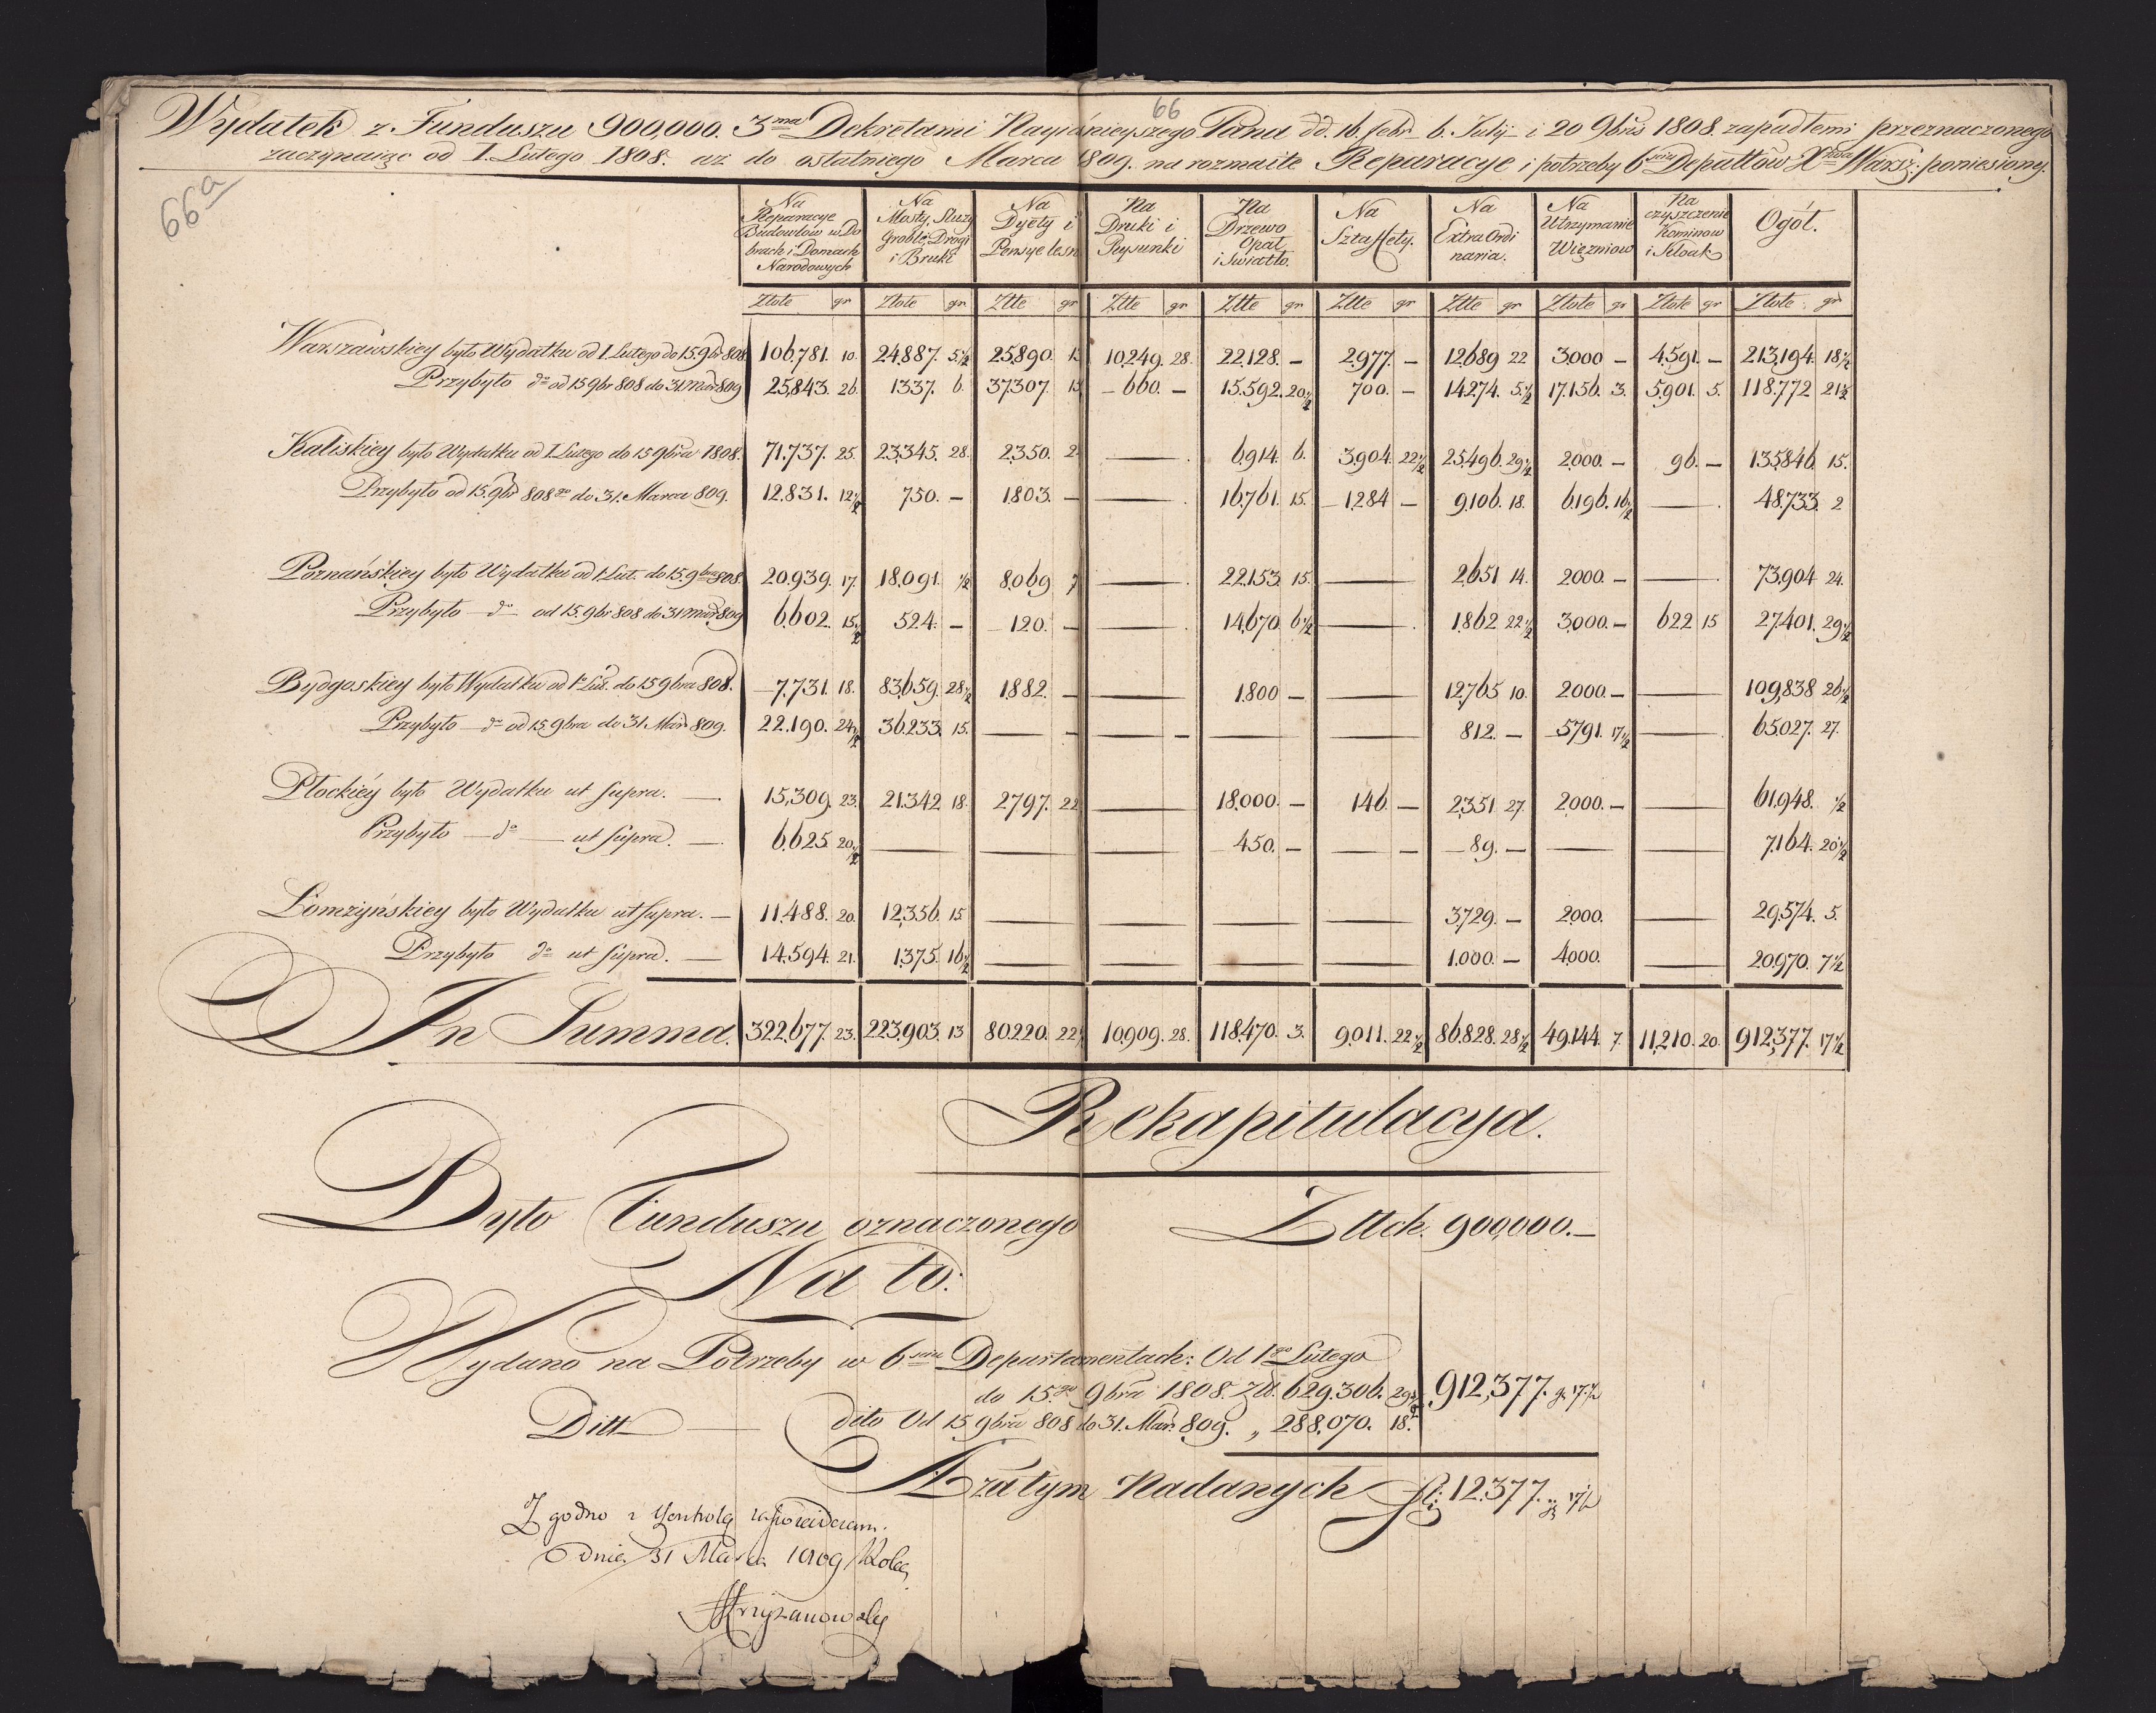 66
66a
Wydatek z Funduszu 900,000. 3ma Dekretami Nayiaśnieyszego Pana dd. 16. febr. 6. Julij i 20 9bris 1808. zapadłemi przeznaczonego
zaczynaiąc od 1. Lutego 1808. aż do ostatniego Marca 1809. na rozmaite Reparacye i potrzeby 6ciu Depattów Xtwa Warsz: poniesiony.
Na Reparacye Budowlów w Dobrach i Domach Narodowych | Na Mosty, Sluzy Groble, Drogi i Bruki | Na Dyety i Pensye lesn | Na Druki i Rysunki | Na Drzewo Opał i Światło. | Na Sztaffety. | Na Extra Ordinaria. | Na Utrzymanie Więzniow | Na czyszczenie Kominow i Kloak | Ogół.
Złote gr | Złote gr | Złłe gr | Złłe gr | Złłe gr | Złłe gr | Złłe gr | Złote gr | Złote gr | Złote gr
Warszawskiey było Wydatku od 1. Lutego do 15. 9br 808. 106,781. 10. | 24,887. 5½ | 25,890. 15 | 10,249. 28. | 22,128. – | 2,977. – | 12,689 22 | 3,000 – | 4,591. – | 213,194. 18½
Przybyło do od 15 9br 808 do 31. Mar 809 25,843. 26. | 1337. 6. | 37,307. 15 | – 660. – | 15,592. 20½ | 700. – | 14,274. 5½ | 17,156. 3. | 5,901. 5. | 118,772 21½
Kaliskiey było Wydatku od 1. Lutego do 15 9bra 1808. 71,737. 25. | 23,345. 28. | 2,350. 2 | — | 6,914. 6. | 3,904. 22½ | 25,496. 29½ | 2,000. – | 96. – | 135,846 15.
Przybyło od 15. 9br 808go do 31. Marca 809. 12,831. 12½ | 750. – | 1,803. – | — | 16,761. 15. | 1,284 – | 9,106. 18. | 6,196. 16½ | — | 48,733. 2
Poznańskiey było Wydatku od 1. Lut. do 15. 9bra 808. 20,939. 17. | 18,091. ½ | 8,069 7 | — | 22,153. 15. | — | 2,651 14. | 2000. – | — | 73,904 24.
Przybyło – do od 15. 9br 808 do 31 Mar 809 6,602. 15½ | 524. – | 120. – | — | 14,670. 6½ | — | 1,862 22½ | 3,000. – | 622 15 | 27,401. 29½
Bydgoskiey było Wydatku od 1. Lut. do 15 9bra 808. 7,731. 18. | 83,659. 28½ | 1,882. – | — | 1.800 – | — | 12,765 10. | 2000. – | — | 109,838 26½
Przybyło – do od 15. 9bra do 31. Mar 809. 22,190. 24½ | 36,233. 15. | — | — | — | — | 812. – | 5791. 17½ | — | 65,027. 27.
Płockiey było Wydatku ut supra. — 15,309. 23. | 21,342 18. | 2797. 22 | — | 18,000. – | 146. – | 2,351. 27. | 2,000. – | — | 61,948. ½
Przybyło — do — ut supra. — 6,625 20½ | — | — | — | 450. – | — | 89. – | — | — | 7,164. 20½
Łomzyńskiey było Wydatku ut supra. — 11,488. 20. | 12,356. 15 | — | — | — | — | 3,729. – | 2,000. | — | 29,574. 5.
Przybyło do ut supra. — 14,594. 21. | 1,375. 16½ | — | — | — | — | 1,000. – | 4,000. | — | 20,970. 7½
In Summa. 322,677. 23. | 223,903. 13 | 80,220. 22 | 10,909. 28. | 118,470. 3. | 9,011. 22½ | 86,828. 28½ | 49,144. 7. | 11,210. 20. | 912,377. 17½
Rekapitulacya.
Było Funduszu oznaczonego Złłch. 900,000. –
Na to:
Wydano na Potrzeby w 6ciu Departamentach: Od 1go Lutego
do 15go 9bra 1808. Zł. 629,306. 29 | 912,377. g. 17½
Ditt — dito Od 15 9bra 808 do 31. Mar. 809. „ 288,070. 18.
A zatym Nadanych fl: 12,377. g 17½
Zgodno z Kontrolą zaświadczam.
dnia 31 Marca 1809 Roku
Krzyżanowski